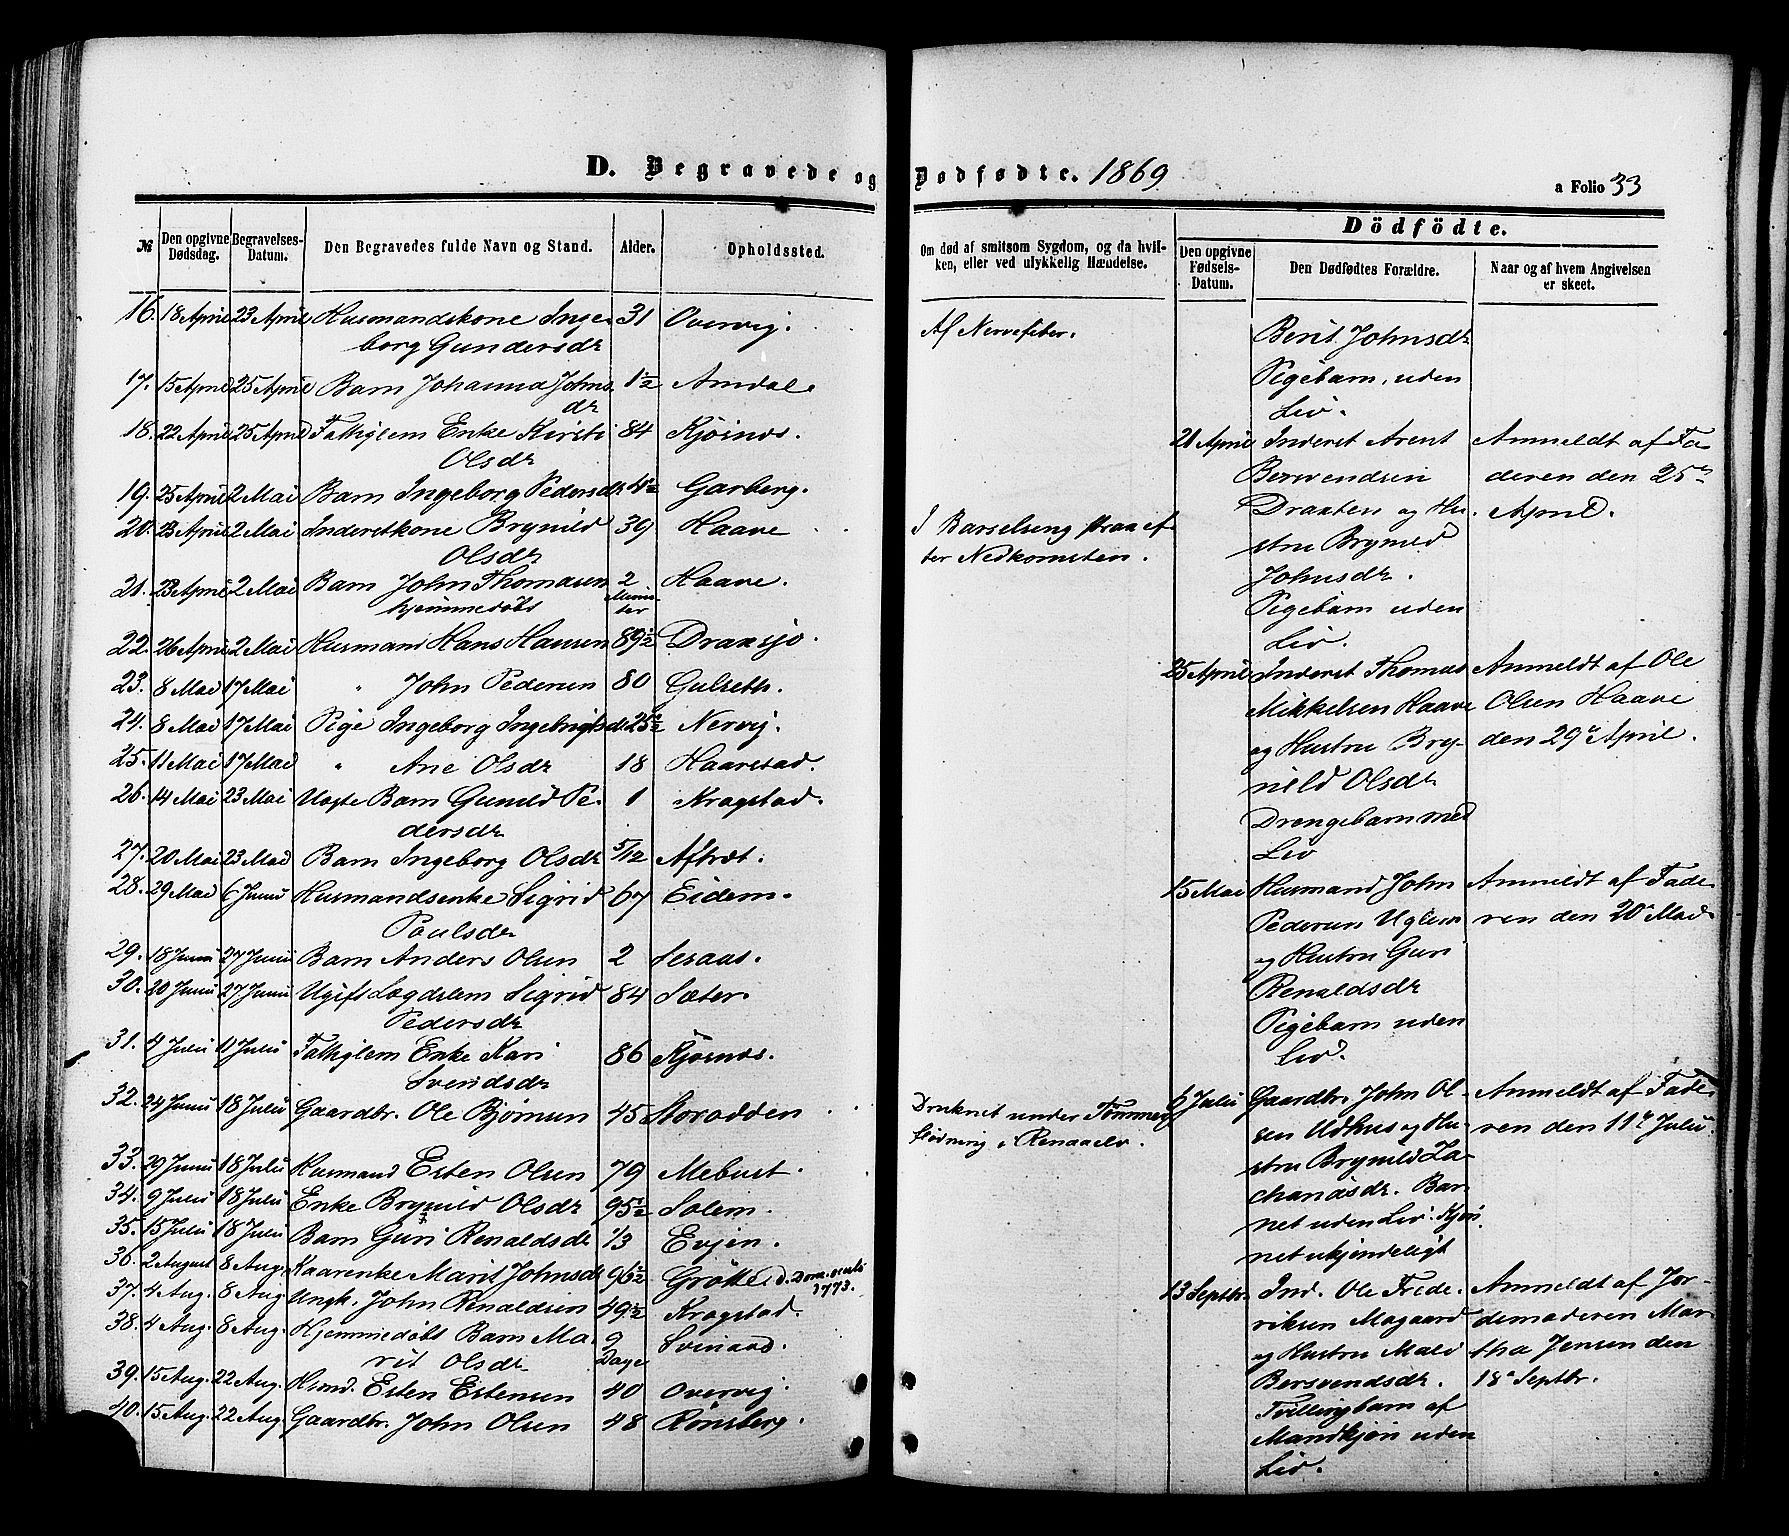 D. Begravede og Dødfødte. 1869
a Folio 33
№ Den opgivne Dødsdag. Begravelses-Datum. Den Begravedes fulde Navn og Stand. Alder. Opholdssted.
16. 18 April 23 April Husmandskone Inge- 31 Overvig.
borg Gundersdr
17. 15 April 25 April Barn Johanna Johns 1½ Amdal.
dr
18. 22 April 25 April Fattiglem Enke Kirsti 84 Kjøsnæs.
Olsdr
19. 25 April 2 Mai Barn Ingeborg Pedersdr 4½ Garberg.
20. 23 April 2 Mai Inderstkone Brynild 39 Haave
Olsdr
21. 23 April 2 Mai Barn John Thomasen 2 Haave.
hjemmedøbt Minut-
ter
22. 26 April 2 Mai Husmand Hans Hansen 89½ Draxsjø.
23. 8 Mai 17 Mai " John Pedersen 80 Gulseth.
24. 8 Mai 17 Mai Pige Ingeborg Ingebrigtsdr 25½ Nervig.
25. 11 Mai 17 Mai " Ane Olsdr 18 Haarstad.
26. 14 Mai 23 Mai Uægte Barn Gunild Pe- 1 Kragstad.
dersdr
27. 20 Mai 23 Mai Barn Ingeborg Olsdr 5/12 Aftræt.
28. 29 Mai 6 Juni Husmandsenke Sigrid 67 Eidem.
Paulsdr
29. 18 Juni 27 Juni Barn Anders Olsen 2 Seraas.
30. 20 Juni 27 Juni Ugift Lægdslem Sigrid 84 Sæter.
Pedersdr
31. 4 Juli 11 Juli Fattiglem Enke Kari 86 Kjøsnæs.
Svendsdr
32. 24 Juni 18 Juli Gaardbr. Ole Bjørnsen 45 Storodden
33. 29 Juni 18 Juli Husmand Esten Olsen 79 Mebust.
34. 9 Juli 18 Juli Enke Brynild Olsdr 95½ Solem.
35. 15 Juli 18 Juli Barn Guri Renaldsdr 1/3 Evjen.
36. 2 August 8 Aug. Kaarenke Marit Johnsdr 96½ Grøtte
1773.
37. 4 Aug. 8 Aug Ungk. John Renaldsen 49½ Kragstad.
38. 4 Aug. 8 Aug. Hjemmedøbt Barn Ma- 9 Svinaad.
rit Olsdr Dage
39. 15 Aug. 22 Aug. Hsmd. Esten Estensen 40 Overvig.
40. 15 Aug. 22 Aug. Gaardbr. John Olsen 48 Rønsberg.
Om død af smitsom Sygdom, og da hvil-
ken, eller ved ulykkelig Hændelse.
Af Nervefeber.
I Barselseng strax ef-
ter Nedkomsten.
Druknet under Tømmer
flødning i Renaaelv.
Dödfödte.
Den opgivne Fødsels-Datum. Den Dødfødtes Forældre. Naar og af hvem Angivelsen er skeet.
Berit Johnsdr
Pigebarn, uden
Liv.
21 April Inderst Arent Anmeldt af Fa-
Bersvendsen deren den 25de
Draxten og Hu- April.
stru Brynild
Johnsdr.
Pigebarn uden
Liv.
25 April Inderst Thomas Anmeldt af Ole
Mikkelsen Haave Olsen Haave
og Hustru Bry- den 29de April.
nild Olsdr
Drengebarn med
Liv
15 Mai Husmand John Anmeldt af Fade-
Pedersen Uglem ren den 20de Mai.
og Hustru Guri
Renaldsdr
Pigebarn uden
Liv.
6 Juli Gaardbr. John Ol- Anmeldt af Fade-
sen Udhus og Hu- ren den 11te Juli.
stru Brynild Za-
chariasdr. Bar-
net uden Liv. Kjøn-
net ukjendeligt
13 Septbr. Ind. Ole Frede- Anmeldt af Jor-
riksen Mogaard demoderen Mar-
og Hustru Mali tha Jensen den
Bersvendsdr. 18de Septbr.
Tvillingbarn af
Mandkjøn uden
Liv.